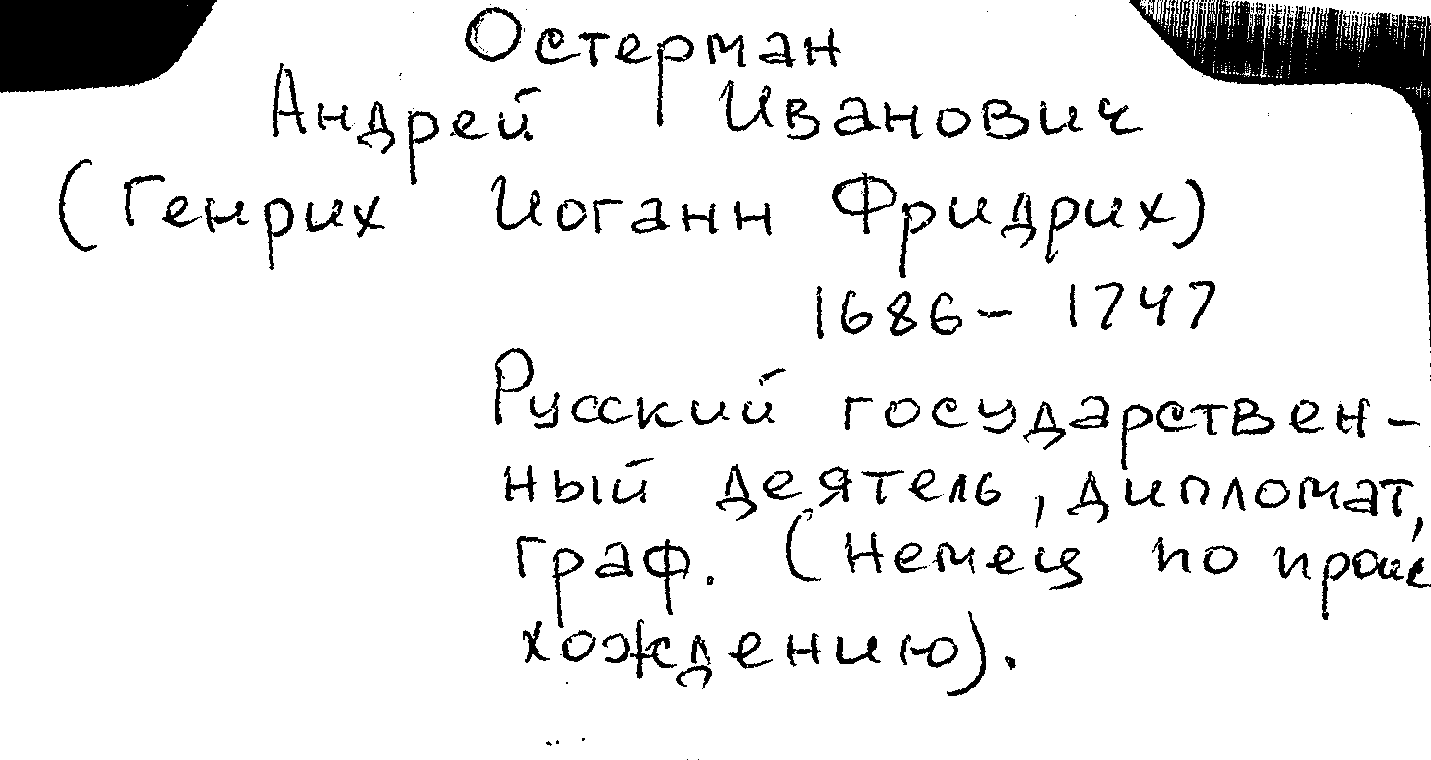 Остерман
Андрей Иванович
(Генрих Иоганн Фридрих)
1686 - 1747
Русский государствен-
ный деятель, дипломат,
граф. (Немец по проис
хождению).